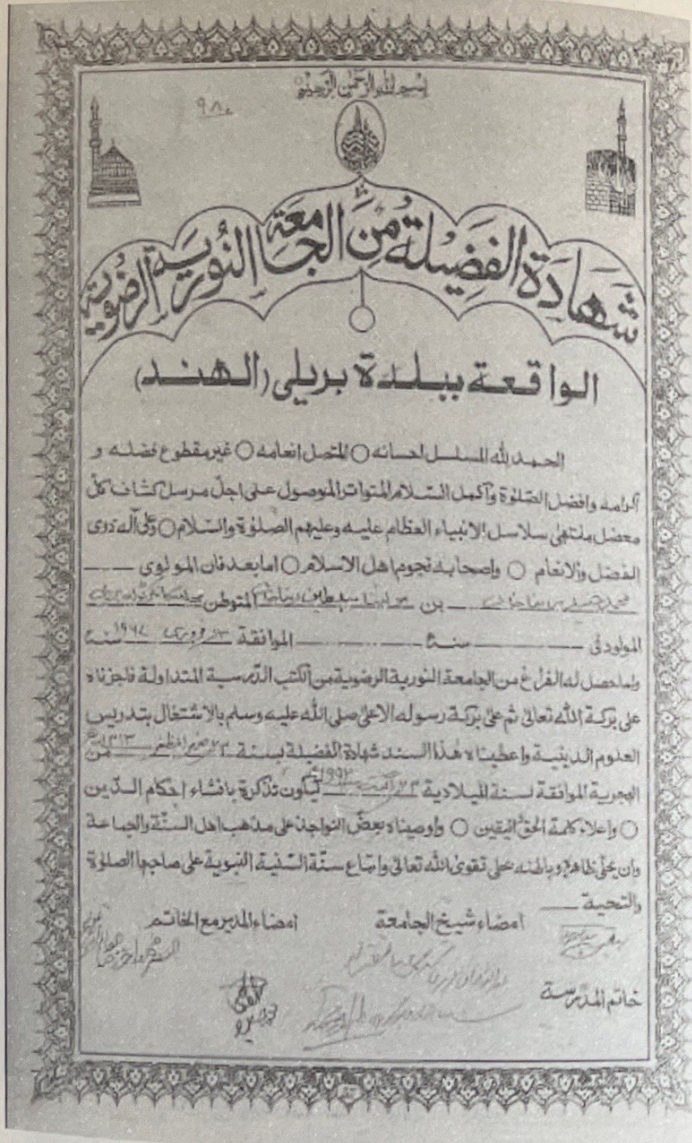 بسم الله الرحمن الرحيم
٩٨٠
شهادة الفضيلة من الجامعة النورية الرضوية
الواقعة ببلدة بريلى (الهند)
الحمد لله المسلسل احسانه ○ المتصل انعامه ○ غير مقطوع فضله و
اكرامه وافضل الصلوٰة واكمل السلام المتواتر الموصول على اجل مرسل كشاف كل
معضل منتهى سلاسل الانبياء العظام عليه وعليهم الصلوٰة والسلام ○ وعلى آله ذوى
الفضل والانعام ○ واصحابه نجوم اهل الاسلام ○ اما بعد فان المولوى
بن المتوطن
المولود فى سنة الموافقة ١٩٦٧ سنة
ولما حصل له الفراغ من الجامعة النورية الرضوية من الكتب الدرسية المتداولة فاجزناه
على بركة الله تعالىٰ ثم على بركة رسوله الاعلىٰ صلى الله عليه وسلم بالاشتغال بتدريس
العلوم الدينية واعطيناه هٰذا السند شهادة الفضيلة بسنة ١٤١٣ من
الهجرية الموافقة لسنة الميلادية ١٩٩٢ ليكون تذكرة بافشاء احكام الدين
○ واعلاء كلمة الحق اليقين ○ واوصيناه بعض النواجذ على مذهب اهل السنة والجماعة
وان يحلى ظاهره وباطنه بحلى تقوى الله تعالىٰ واتباع سنة السنية النبوية على صاحبها الصلوٰة
والتحية
امضاء شيخ الجامعة
امضاء المدير مع الخاتم
خاتم المدرسة